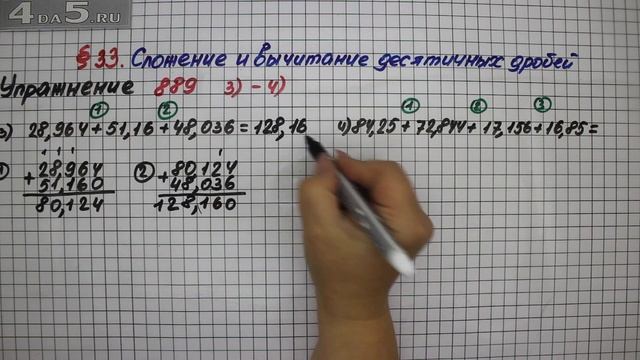 4DA5.RU
§ 33. Сложение и вычитание десятичных дробей
Упражнение 889 3) - 4)
① ②
3) 28,964 + 51,16 + 48,036 = 128,16
① ② ③
4) 84,25 + 72,844 + 17,156 + 16,85 =
① + 28,964
51,160
80,124
② + 80,124
48,036
128,160